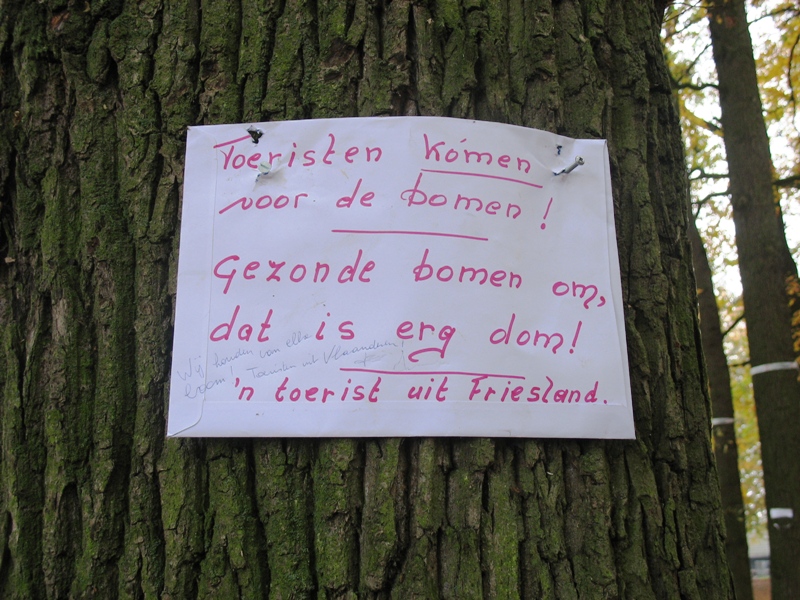 Toeristen kómen
voor de bomen!
Gezonde bomen om,
dat is erg dom!
Wij houden van elke
boom! Toeristen uit Vlaanderen!
'n toerist uit Friesland.